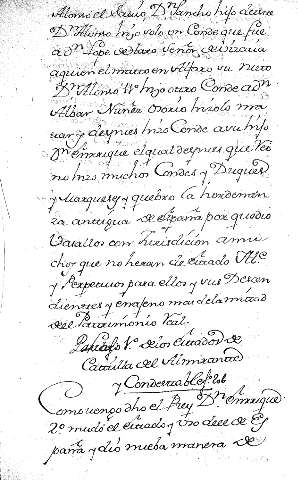 Alonso el Sabio, Dn Sancho hijo de este
Dn Alonso hizo solo un Conde que fue
a Dn Lope de Haro Señor de Vizcaia
a quien el mato en Alfaro su nieto
Dn Alonso hizo otro Conde a Dn
Albar Nuñez Osorio hizolo ma
tar y despues hizo Conde a su hijo
Dn Enrrique el qual despues que
no hizo muchos Condes y Duques
y Marqueses y quebro la hordenan
za antigua de españa por que dio
Vasallos con Jurisdicion a mu
chos que no heran de estado
y Perpetuos para ellos y sus Decen
dientes y enageno mas de la mitad
del Patrimonio Real
de los estados de
Castilla del Almirante
y Condestable
Como tengo dho el Rey Dn Enrrique
2o mudó el estado y orden de Es
paña y dió nueba manera de